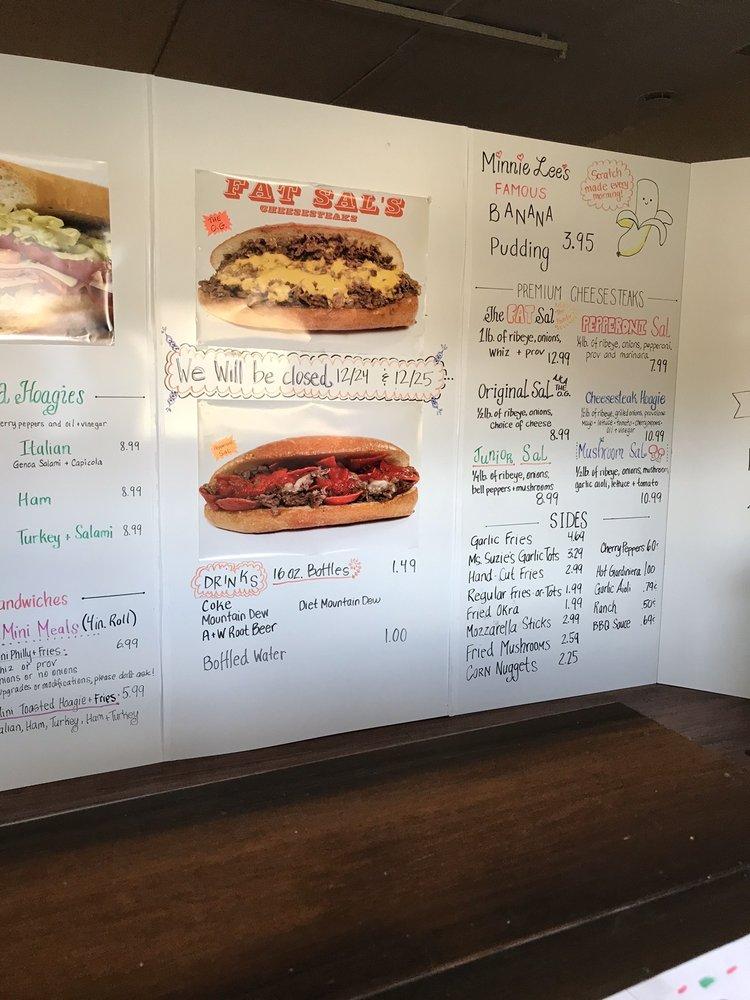 Hoagies
erry peppers and oil + vinegar
Italian 8.99
Genoa Salami + Capicola
Ham 8.99
Turkey + Salami 8.99
andwiches
Mini Meals (4in. Roll)
ni Philly + Fries: 6.99
hiz or prov
nions or no onions
pgrades or modifications, please don't ask!
ini Toasted Hoagie + Fries. 5.99
alian, Ham, Turkey, Ham + Turkey
FAT SAL'S
CHEESESTEAKS
THE O.G.
We Will be closed 12/24 & 12/25
DRINKS 16 oz. Bottles 1.49
Coke Diet Mountain Dew
Mountain Dew
A+W Root Beer
Bottled Water 1.00
Minnie Lee's
FAMOUS
BANANA
Pudding 3.95
Scratch
made every
morning!
PREMIUM CHEESESTEAKS
The FAT Sal
1lb. of ribeye, onions,
Whiz + prov 12.99
PEPPERONI Sal
½lb. of ribeye, onions, pepperoni,
prov and marinara.
7.99
Original Sal THE O.G.
½lb. of ribeye, onions,
choice of cheese
8.99
Cheesesteak Hoagie
½lb. of ribeye, grilled onions, provolone
mayo + lettuce + tomato + cherry peppers +
oil + vinegar
10.99
Junior Sal
¼lb. of ribeye, onions,
bell peppers + mushrooms
8.99
Mushroom Sal
½lb. of ribeye, onions, mushroom,
garlic aioli, lettuce + tomato
10.99
SIDES
Garlic Fries 4.69
Ms. Suzie's Garlic Tots 3.29
Hand-Cut Fries 2.99
Regular Fries-or-Tots 1.99
Fried Okra 1.99
Mozzarella Sticks 2.99
Fried Mushrooms 2.59
Corn Nuggets 2.25
Cherry Peppers 60¢
Hot Giardiniera 1.00
Garlic Aioli .79¢
Ranch 50¢
BBQ Sauce .69¢